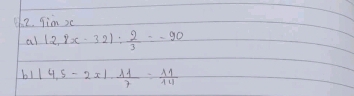 2. Tìm x
a) (2,8x - 32) : 2/3 = -90
b) (4,5 - 2x) . 11/7 = 11/14